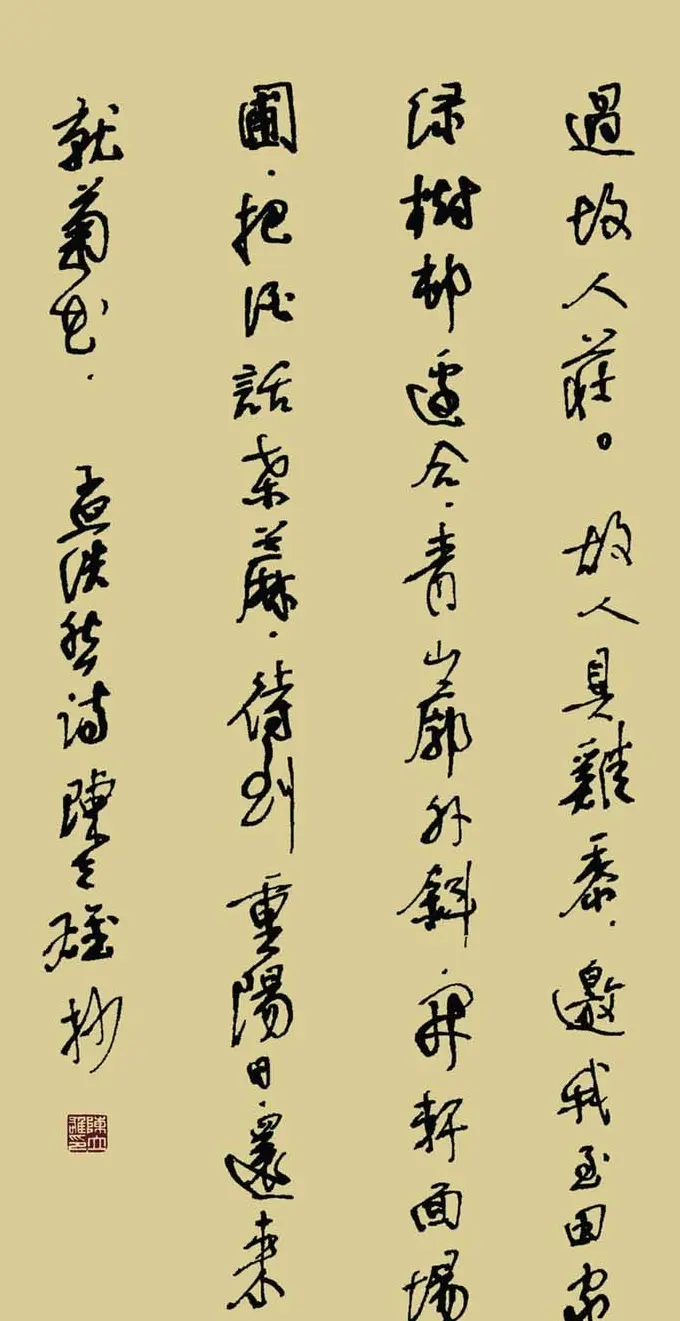 過故人莊。故人具雞黍.邀我至田家
綠樹邨邊合.青山廓外斜.開軒面場
圃.把酒話桑麻.待到重陽日.還來
就菊花.
孟浩然詩陳立雄抄
陳立雄印